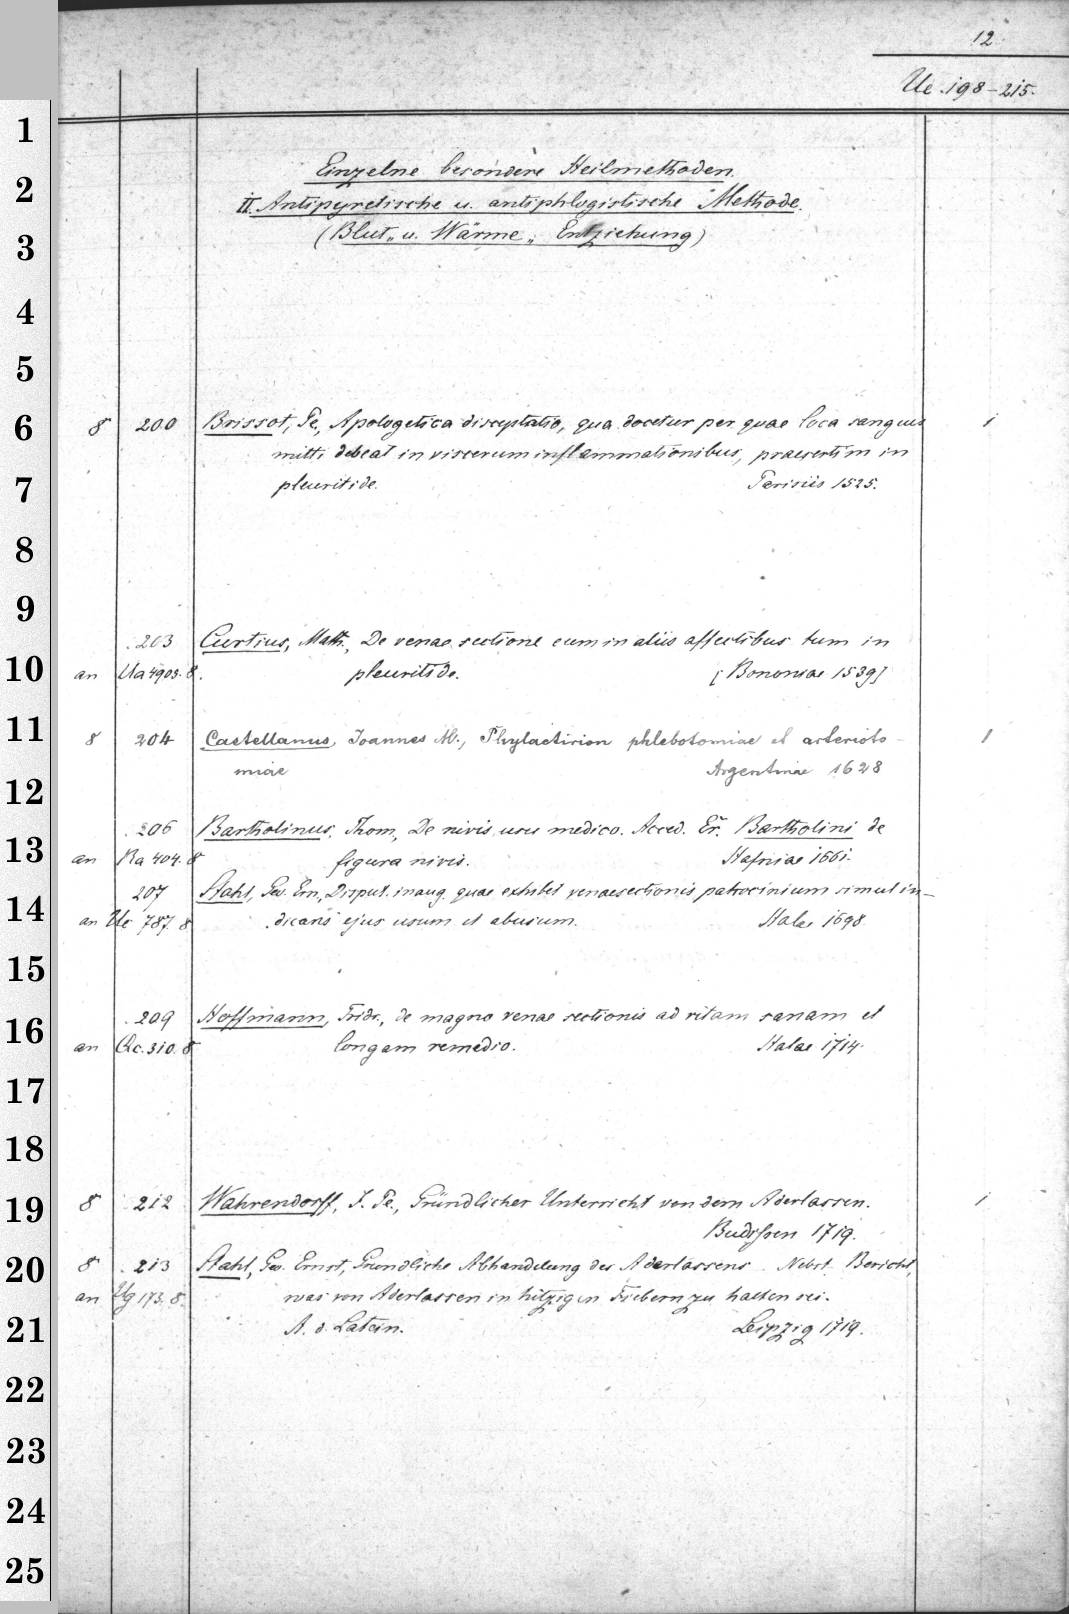 12
Ue. 198-215.
1
Einzelne besondere Heilmethoden.
2
II. Antipyretische u. antiphlogistische Methode.
3
(Blut- u. Wärme- Entziehung)
4
5
6
8 200 Brissot, Pe., Apologetica disceptatio, qua docetur per quae loca sanguis 1
mitti debeat in viscerum inflammationibus, praesertim in
7
pleuritide. Parisiis 1525.
8
9
203 Curtius, Math., De venae sectione cum in aliis affectibus tum in
10
an Ua 4903. 8. pleuritide. [Bononiae 1539]
11
8 204 Castellanus, Joannes M., Phylactirion phlebotomiae et arterioto- 1
12
miae Argentinae 1628
13
206 Bartholinus, Thom., De nivis usu medico. Acced. Er. Bartholini de
an Ra 404. 8 figura nivis. Hafniae 1661.
14
207 Stahl, Geo. Ern., Disput. inaug. quae exhibet venaesectionis patrocinium simul in-
an Ue 787. 8 dicans ejus usum et abusum. Halae 1698.
15
16
209 Hoffmann, Fridr., de magno venae sectionis ad vitam sanam et
an Qc. 310. 8 longam remedio. Halae 1714.
17
18
19
8 212 Wahrendorff, J. Pe., Gründlicher Unterricht von dem Aderlassen. 1
Budissen 1719.
20
8 213 Stahl, Geo. Ernst, Gründliche Abhandlung des Aderlassens. Nebst Bericht,
an Ug 173. 8. was von Aderlassen in hitzigen Fiebern zu halten sei.
21
A. d. Latein. Leipzig 1719.
22
23
24
25